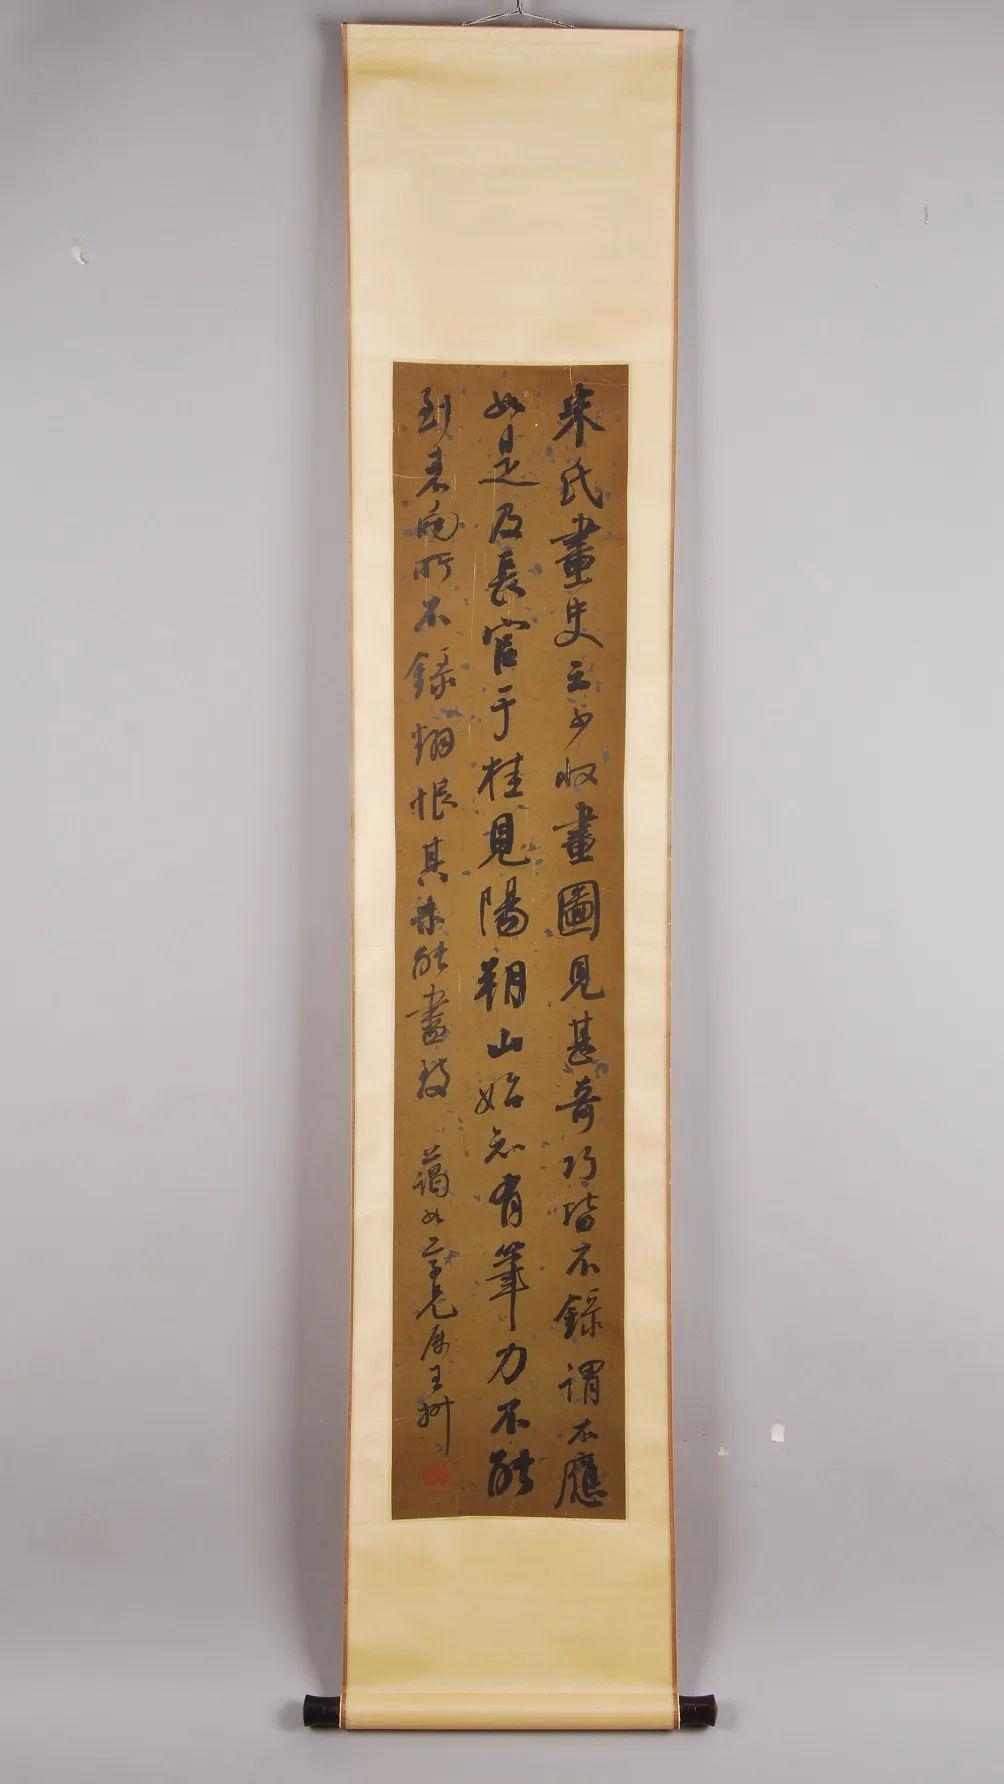 米氏畫史云少收畫圖見甚奇巧皆不錄謂不應
如是及長官于桂見陽朔山始知有筆力不能
到者向所不錄翻恨其未能畫
藹如學兄屬王澍